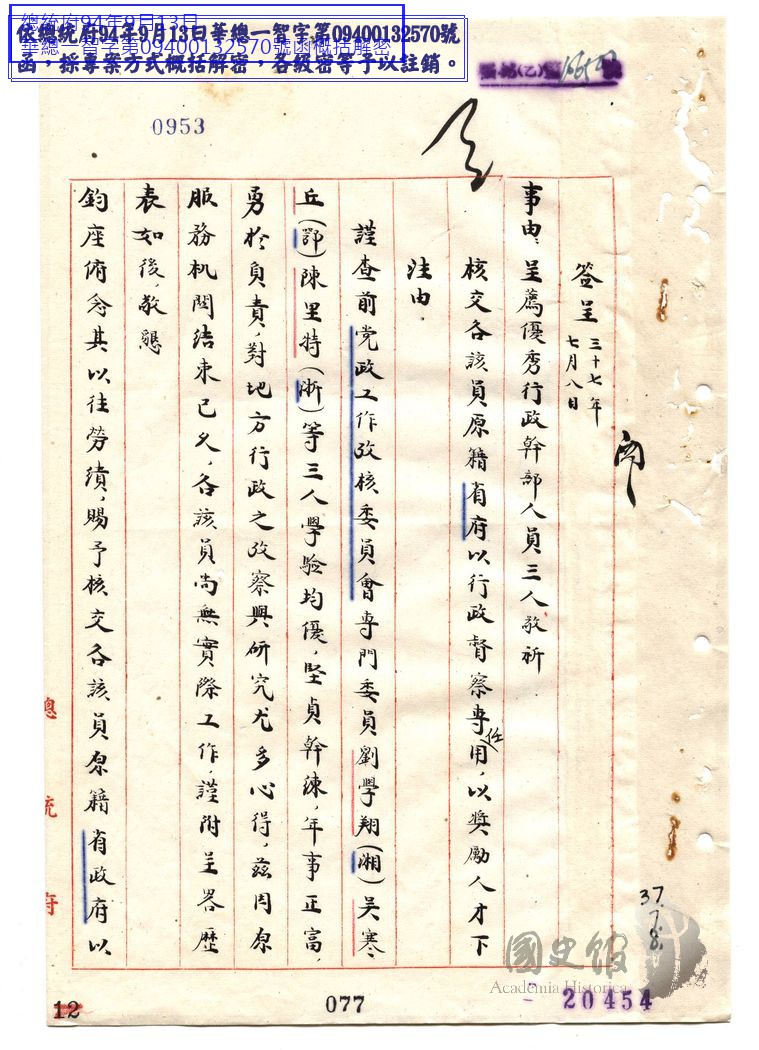 總統府94年9月13日
華總一智字第09400132570號函概括解密
依總統府94年9月13日華總一智字第09400132570號
函，採專案方式概括解密，各級密等予以註銷。
0953
簽呈 三十七年七月八日
事由、呈薦優秀行政幹部人員三人敬祈
核交各該員原籍省府以行政督察專任用，以獎勵人才下
注由．
謹查前党政工作攷核委員會專門委員劉學翔(湘)吳寒
丘(鄂)陳里特(浙)等三人學驗均優，堅貞幹練，年事正富，
勇於負責，對地方行政之攷察與研究尤多心得，茲因原
服務机関結束已久，各該員尚無實際工作，謹附呈畧歷
表如後，敬懇
鈞座俯念其以往勞績，賜予核交各該員原籍省政府以
總統府
37.7.8.
國史館
Academia Historica
12
077
20454